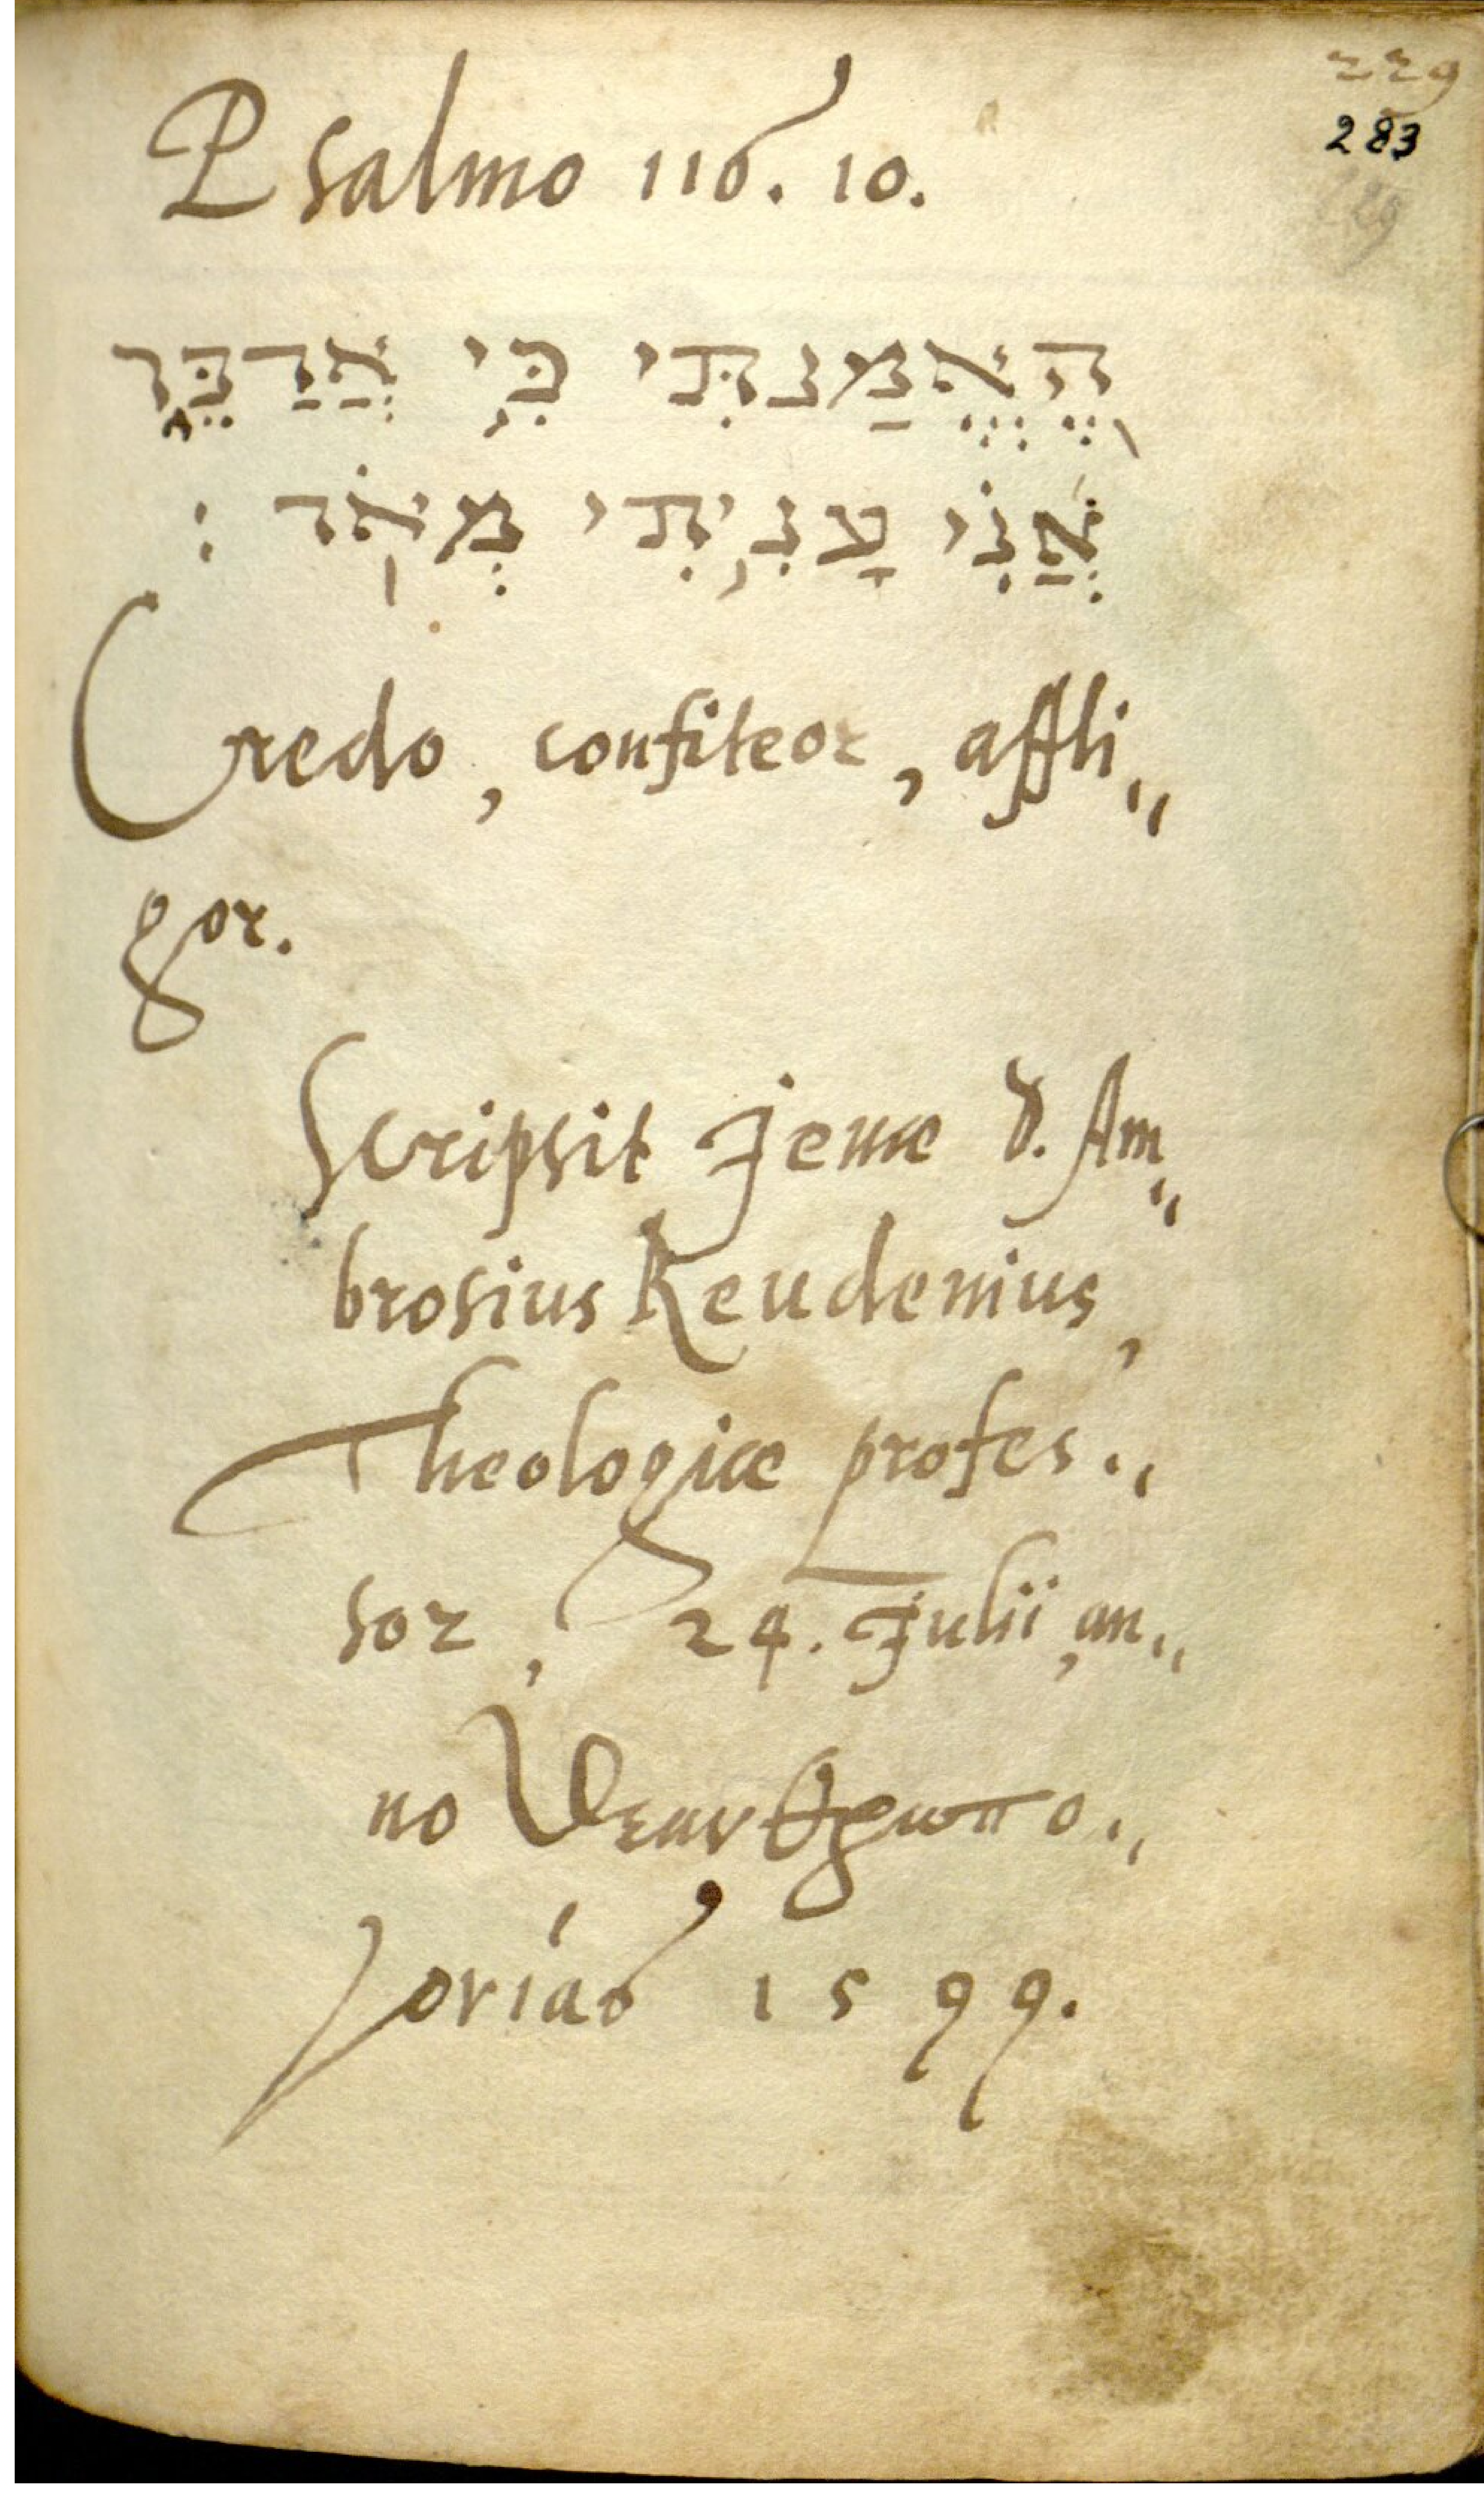 229
283
229
Psalmo 116. 10.
הֶֽאֱמַנְתִּי כִּ֣י אֲדַבֵּ֑ר
אֲ֝נִ֗י עָנִ֥יתִי מְאֹֽד :
Credo, confiteor, affli„
gor.
Scripsit Jenæ D. Am„
brosius Reudenius,
Theologiæ profes„
sor, 24. Julii, an„
no θεανθρωπο„
γονίας 1599.